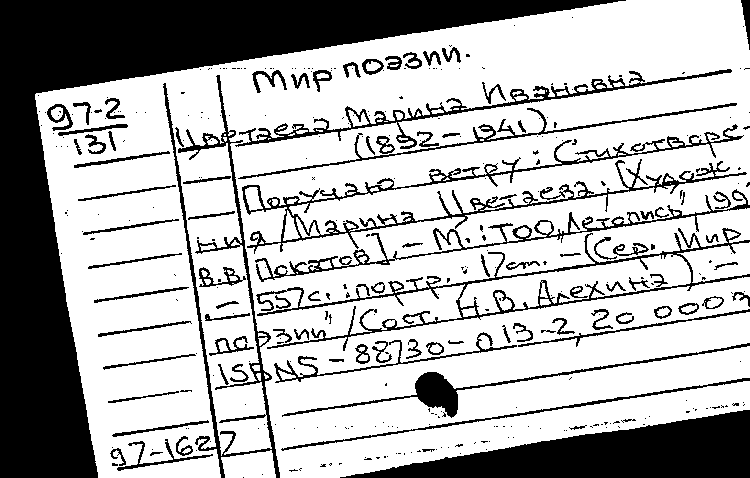 Мир поэзии.
97-2
131
Цветаева, Марина Ивановна
(1892 - 1941).
Поручаю ветру: Стихотворе-
ния / Марина Цветаева; [Худож.
В.В. Покатов]. - М.: ТОО „Летопись", 199
. - 557с.: портр.; 17см. - (Сер. „Мир
поэзии" / Сост. Н.В. Алехина). -
ISBN 5-88730-013-2, 20 000э
97-1627